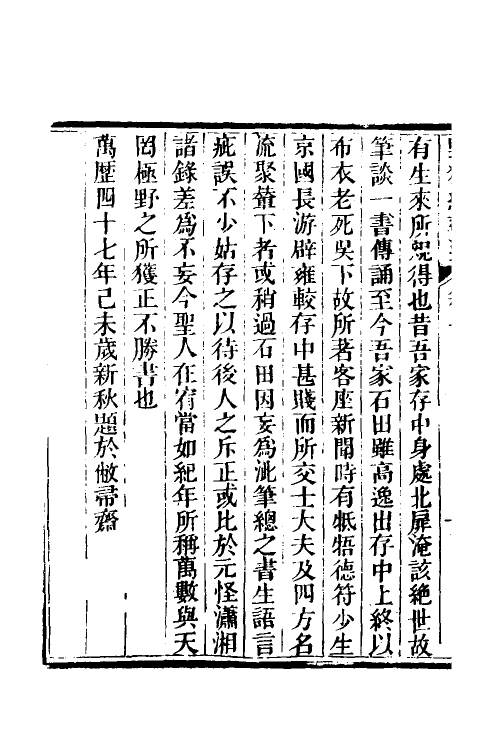 有生來所覩得也昔吾家存中身處北扉淹該絶世故
筆談一書傳誦至今吾家石田雖高逸出存中上終以
布衣老死吳下故所著客座新聞時有牴牾德符少生
京國長游辟雍較存中甚賤而所交士大夫及四方名
流聚輦下者或稍過石田因妄為泚筆總之書生語言
疵誤不少姑存之以待後人之斥正或比於元怪瀟湘
諸錄差為不妄今聖人在宥當如紀年所稱萬數與天
罔極野之所獲正不勝書也
萬歷四十七年己未歲新秋題於敝帚齋